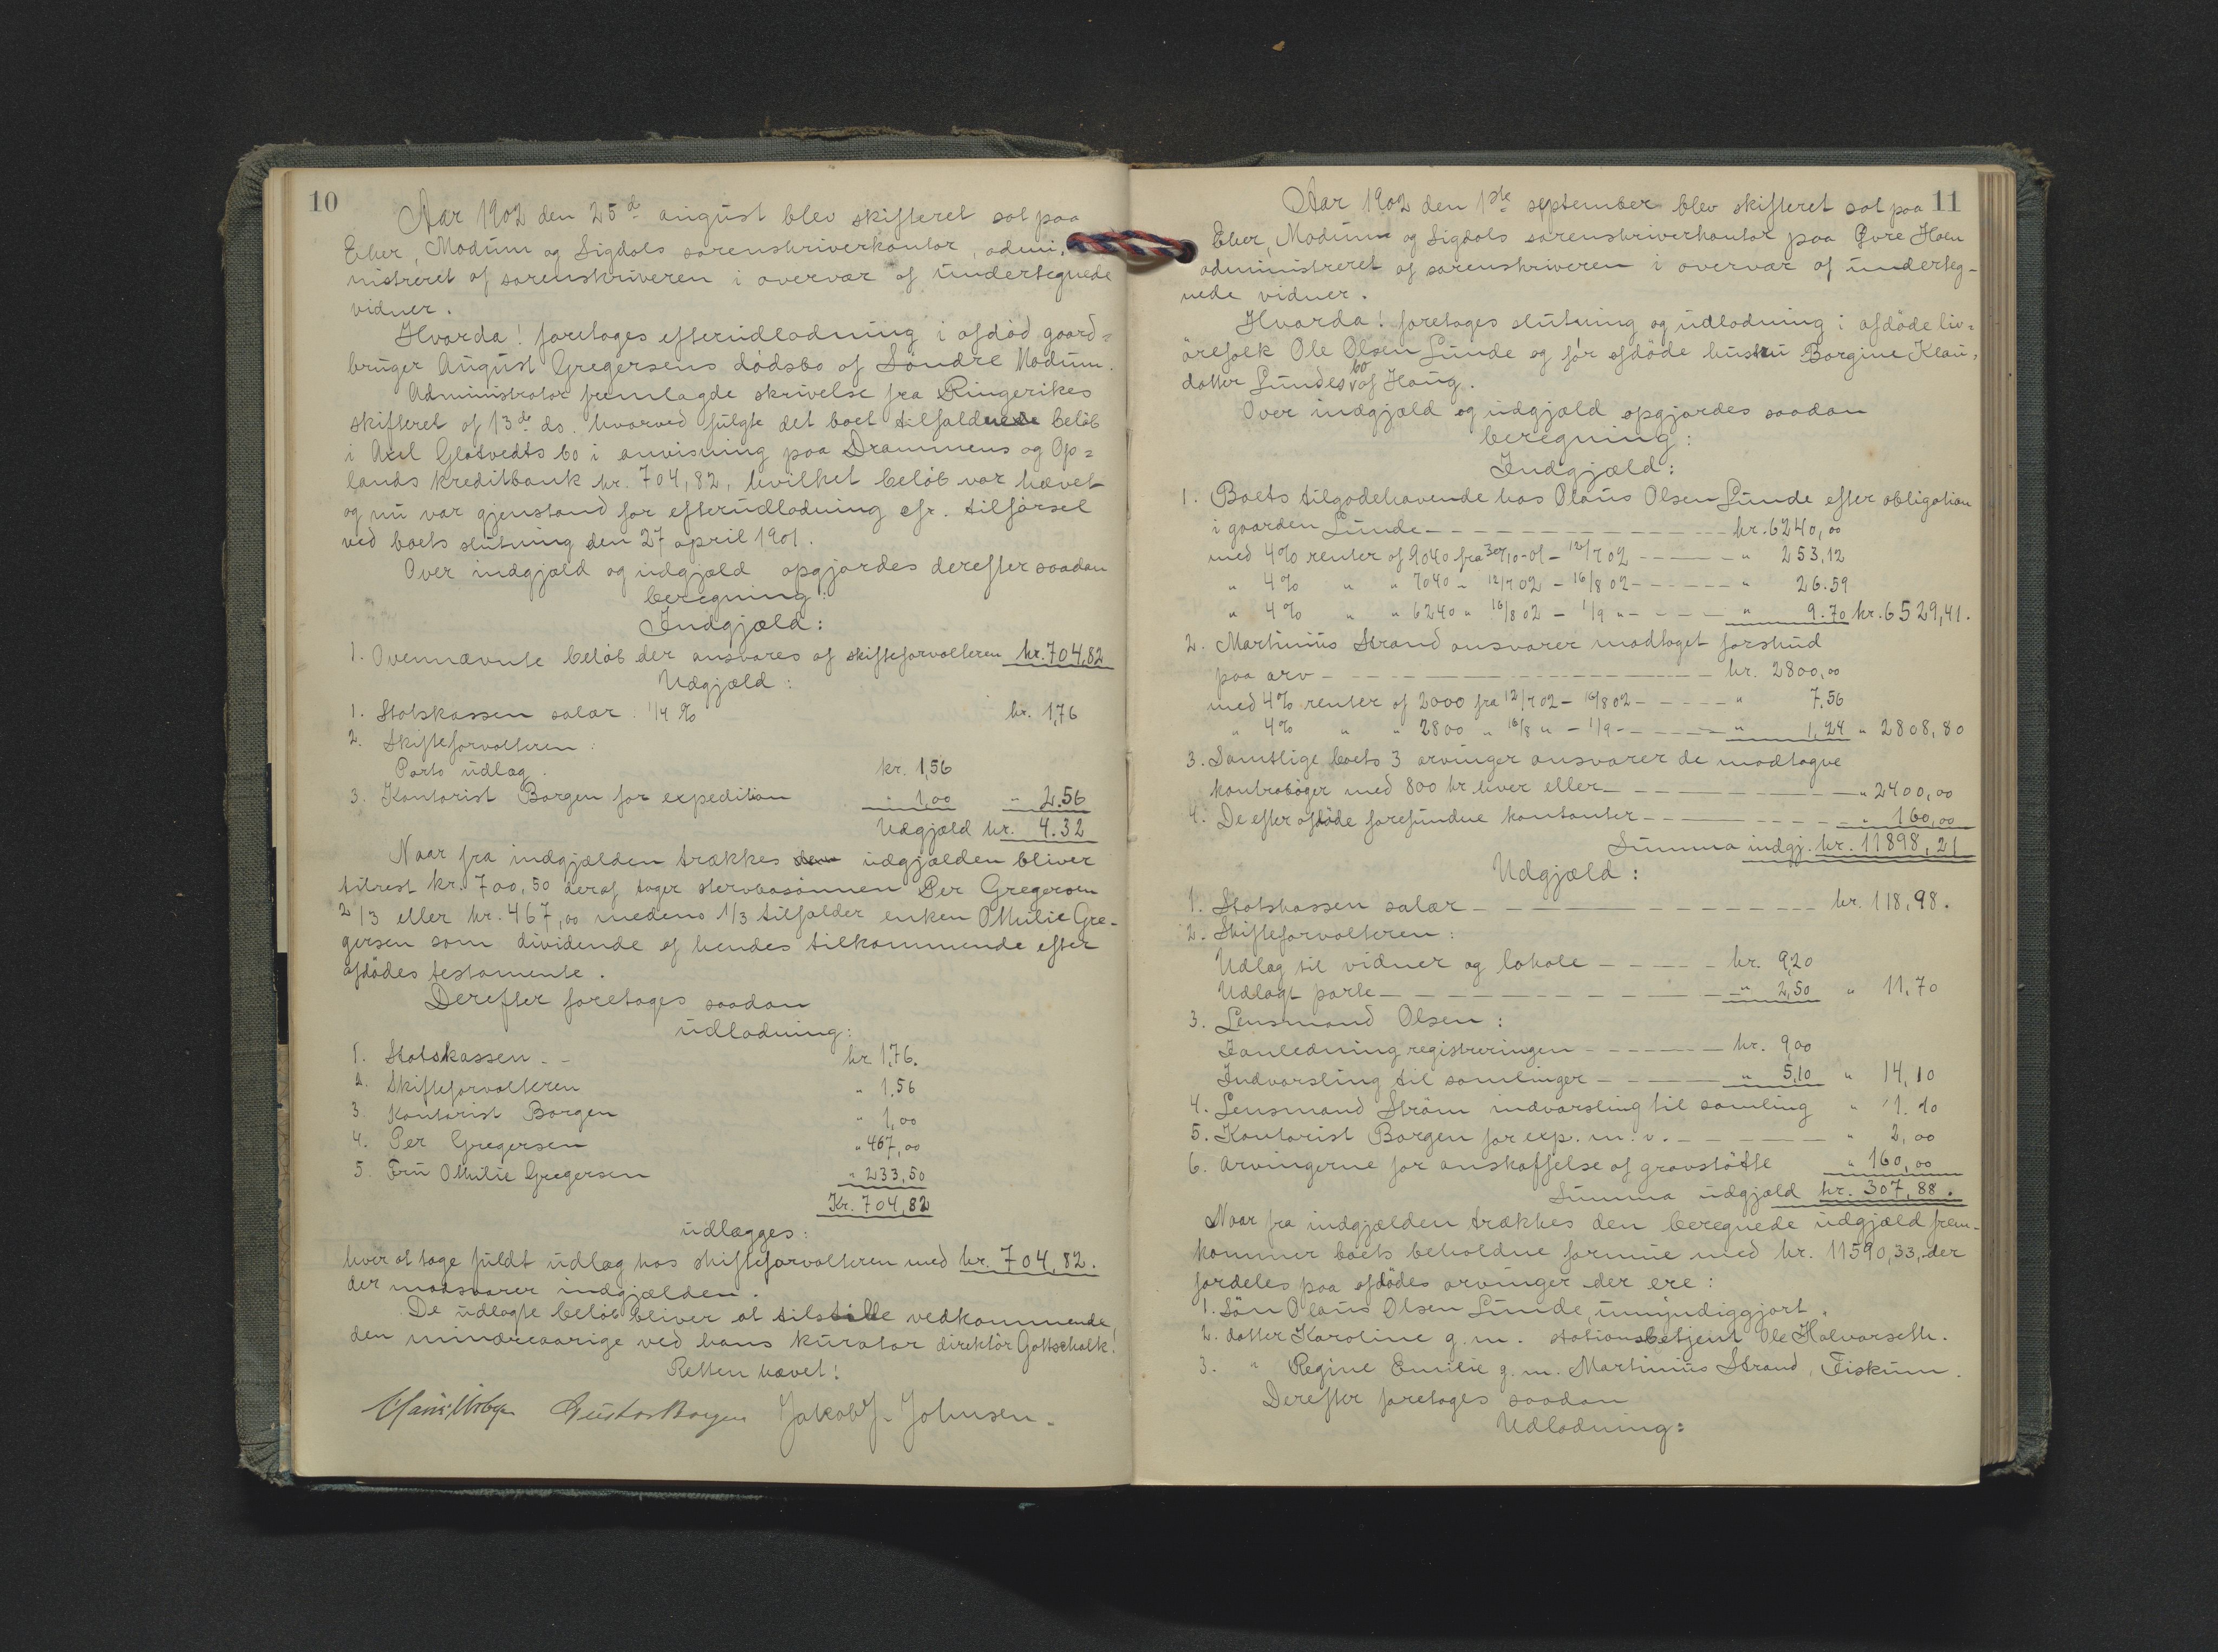 10
Aar 1902 den 25de august blev skifteret sat paa
Eker, Modum og Sigdals sorenskriverkontor, admi-
nistreret af sorenskriveren i overvær af undertegnede
vidner.
Hvorda! foretoges efterudlodning i afdød gaard=
bruger August Gregersens dødsbo af Søndre Modum.
Administrator fremlagde skrivelse fra Ringerikes
skifteret af 13de ds. hvorved fulgte det boet tilfaldne beløb
i Axel Glatvedts bo i anvisning paa Drammens og Op=
lands kreditbank kr. 704,82, hvilket beløb var hævet
og nu var gjenstand for efterudlodning cfr. tilførsel
ved boets slutning den 27 april 1901.
Over indgjæld og udgjæld opgjordes derefter saadan
beregning:
Indgjæld:
1. Ovennævnte beløb der ansvares af skifteforvalteren kr. 704,82
Udgjæld:
1. Statskassen salær 1/4 % kr. 1,76
2. Skifteforvalteren:
Porto udlæg. kr. 1,56
3. Kontorist Borgen for expedition " 1,00 " 2.56
Udgjæld kr. 4.32
Naar fra indgjælden trækkes den udgjælden bliver
tilrest kr. 700,50 deraf tager stervbosønnen Per Gregersen
2/3 eller kr. 467,00 medens 1/3 tilfalder enken Othilie Gre-
gersen som dividende af hendes tilkommende efter
afdødes testamente.
Derefter foretoges saadan
udlodning:
1. Statskassen - - kr 1,76.
2. Skifteforvalteren " 1,56
3. Kontorist Borgen " 1,00
4. Per Gregersen " 467,00
5. Fru Othilie Gregersen " 233,50
Kr. 704,82
udlægges:
hver at tage fuldt udlæg hos skifteforvalteren med kr. 704,82.
der modsvarer indgjælden.
De udlagte beløb bliver at tilstille vedkommende,
den mindreaarige ved hans kurator direktør Gottschalk!
Retten hævet!
Gustav Borgen Jakob J. Johnsen.
11
Aar 1902 den 1ste september blev skifteret sat paa
Eker, Modum og Sigdals sorenskriverkontor paa Øvre Hoen
administreret af sorenskriveren i overvær af underteg-
nede vidner.
Hvorda! foretoges slutning og udlodning i afdøde liv=
ørefolk Ole Olsen Lunde og før afdøde hustru Borgine Klau=
datter Lundes bo af Haug.
Over indgjæld og udgjæld opgjordes saadan
beregning:
Indgjæld:
1. Boets tilgodehavende hos Olaus Olsen Lunde efter obligation
i gaarden Lunde - - - kr. 6240,00
med 4% renter af 9040 fra 30/10-01 - 12/7 02 - - - " 253,12
" 4% " " 7040 - 12/7 02 - 16/8 02 - - - " 26.59
" 4% " " 6240 " 16/8 02 - 1/9 " - - - " 9.70 kr. 6529,41.
2. Martinius Strand ansvarer modtaget forskud
paa arv - - - kr. 2800,00
med 4% renter af 2000 fra 12/7 02 - 16/8 02 - - - " 7.56
" 4% " " 2800 " 16/8 " - 1/9 - - - " 1,24 " 2808,80
3. Samtlige boets 3 arvinger ansvarer de modtagne
kontrabøger med 800 kr hver eller - - - " 2400,00
4. De efter afdøde forefundne kontanter - - - " 160,00
Summa indgj. kr. 11898,21
Udgjæld:
1. Statskassen salær - - - kr. 118,98.
2. Skifteforvalteren:
Udlæg til vidner og lokale - - - kr. 9,20
Udlagt porto - - - " 2,50 " 11,70
3. Lensmand Olsen:
I anledning registreringen - - - kr. 9,00
Indvarsling til samlinger - - - " 5,10 " 14,10
4. Lensmand Strøm indvarsling til samling " 1.10
5. Kontorist Borgen for exp. m. v. - - - " 2,00
6. Arvingerne for anskaffelse af gravstøtte " 160,00
Summa udgjæld kr. 307,88.
Naar fra indgjælden trækkes den beregnede udgjæld frem-
kommer boets beholdne formue med kr. 11590,33, der
fordeles paa afdødes arvinger der ere:
1. Søn Olaus Olsen Lunde, umyndiggjort.
2. datter Karoline g. m. stationsbetjent Ole Halvorseth.
3. " Regine Emilie g. m. Martinius Strand, Fiskum.
Derefter foretoges saadan
Udlodning: